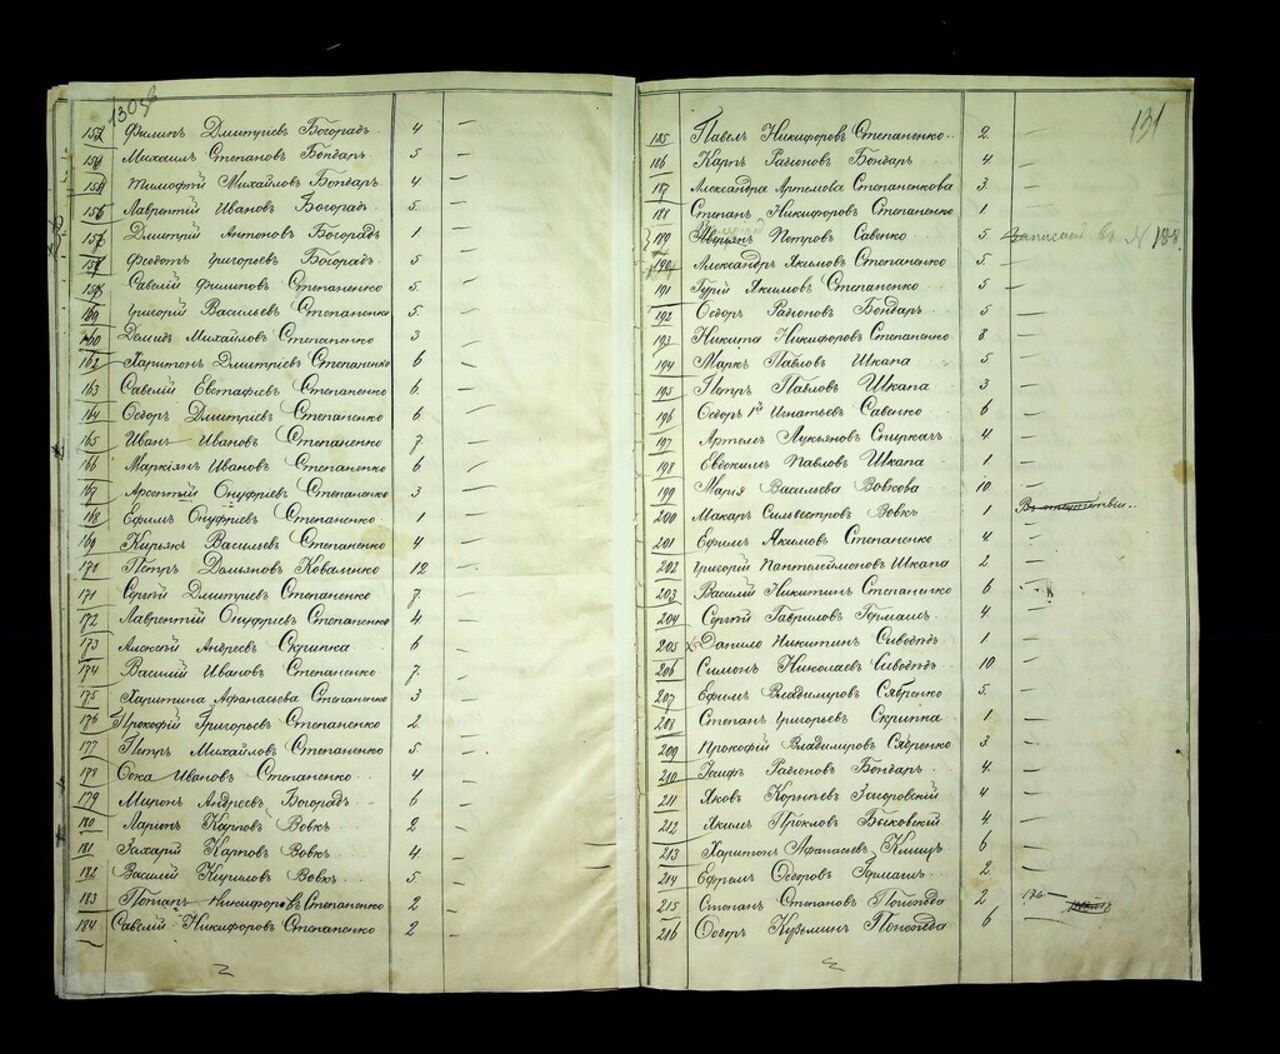 130 об
153 Филипъ Дмитріевъ Богорадъ 4 —
154 Михаилъ Степановъ Бондарь 5 —
155 Тимофтій Михайловъ Бондарь 4 —
156 Лаврентій Ивановъ Богорадъ 5 —
157 Дмитрій Антоновъ Богорадъ 1 —
158 Федотъ Григорьевъ Богорадъ 5 —
159 Савелій Филиповъ Степаненко 5 —
160 Григорій Васильевъ Степаненко 5 —
Демидъ Михайловъ Степаненко 3 —
162 Харитонъ Дмитріевъ Степаненко 6 —
163 Савелій Евстафіевъ Степаненко 6 —
164 Ѳедоръ Дмитріевъ Степаненко 6 —
165 Иванъ Ивановъ Степаненко 7 —
166 Маркіянъ Ивановъ Степаненко 6 —
167 Арсентій Онуфріевъ Степаненко 3 —
168 Ефимъ Онуфріевъ Степаненко 1 —
169 Кирьякъ Васильевъ Степаненко 4 —
171 Петръ Демьяновъ Коваленко 12 —
171 Сергѣй Дмитріевъ Степаненко 7 —
172 Лаврентій Онуфріевъ Степаненко 4 —
173 Алексѣй Андреевъ Скрипка 6 —
174 Василій Ивановъ Степаненко 7 —
175 Харитина Афанасьева Степаненко 3 —
176 Прокофій Григорьевъ Степаненко 2 —
177 Петръ Михайловъ Степаненко 5 —
178 Ѳока Ивановъ Степаненко 4 —
179 Миронъ Андреевъ Богорадъ 6 —
180 Ларіонъ Карповъ Вовкъ 2 —
181 Захарій Карповъ Вовкъ 4 —
182 Василій Кириловъ Вовкъ 5 —
183 Потапъ Никифоровъ Степаненко 2 —
184 Савелій Никифоровъ Степаненко 2 —
131
185 Павелъ Никифоровъ Степаненко 2 —
186 Карпъ Радіоновъ Бондарь 4 —
187 Александра Артемова Степаненкова 3 —
188 Степанъ Никифоровъ Степаненко 1 —
189 Аверьянъ Петровъ Савенко 5 Записанъ въ № 188
190 Александръ Якимовъ Степаненко 5 —
191 Гурій Якимовъ Степаненко 5 —
192 Ѳедоръ Радіоновъ Бондарь 5 —
193 Никита Никифоровъ Степаненко 8 —
194 Маркъ Павловъ Шкапа 5 —
195 Петръ Павловъ Шкапа 3 —
196 Ѳедоръ 1й Игнатьевъ Савенко 6 —
197 Артемъ Лукьяновъ Спиркачъ 4 —
198 Евдокимъ Павловъ Шкапа 1 —
199 Марія Васильева Вовкова 10 —
200 Макаръ Сильвестровъ Вовкъ 1 Въ отсутствіи
201 Ефимъ Якимовъ Степаненко 4 —
202 Григорій Пантелеймоновъ Шкапа 2 —
203 Василій Никитинъ Степаненко 6
204 Сергѣй Гавриловъ Германъ 4 —
205 Данило Никитинъ Сиводѣдъ 1 —
206 Симонъ Николаевъ Сиводѣдъ 10 —
207 Ефимъ Владимировъ Сябренко 5 —
208 Степанъ Григорьевъ Скрипка 1 —
209 Прокофій Владимировъ Сябренко 3 —
210 Іосифъ Радіоновъ Бондарь 4 —
211 Яковъ Корнѣевъ Загоровскій 4 —
212 Якимъ Прокловъ Быковскій 4 —
213 Харитонъ Афанасьевъ Книшъ 6 —
214 Ефремъ Ѳедоровъ 2 —
215 Степанъ Степановъ Попенда 2
216 Ѳедоръ Кузьминъ Попенда 6 —